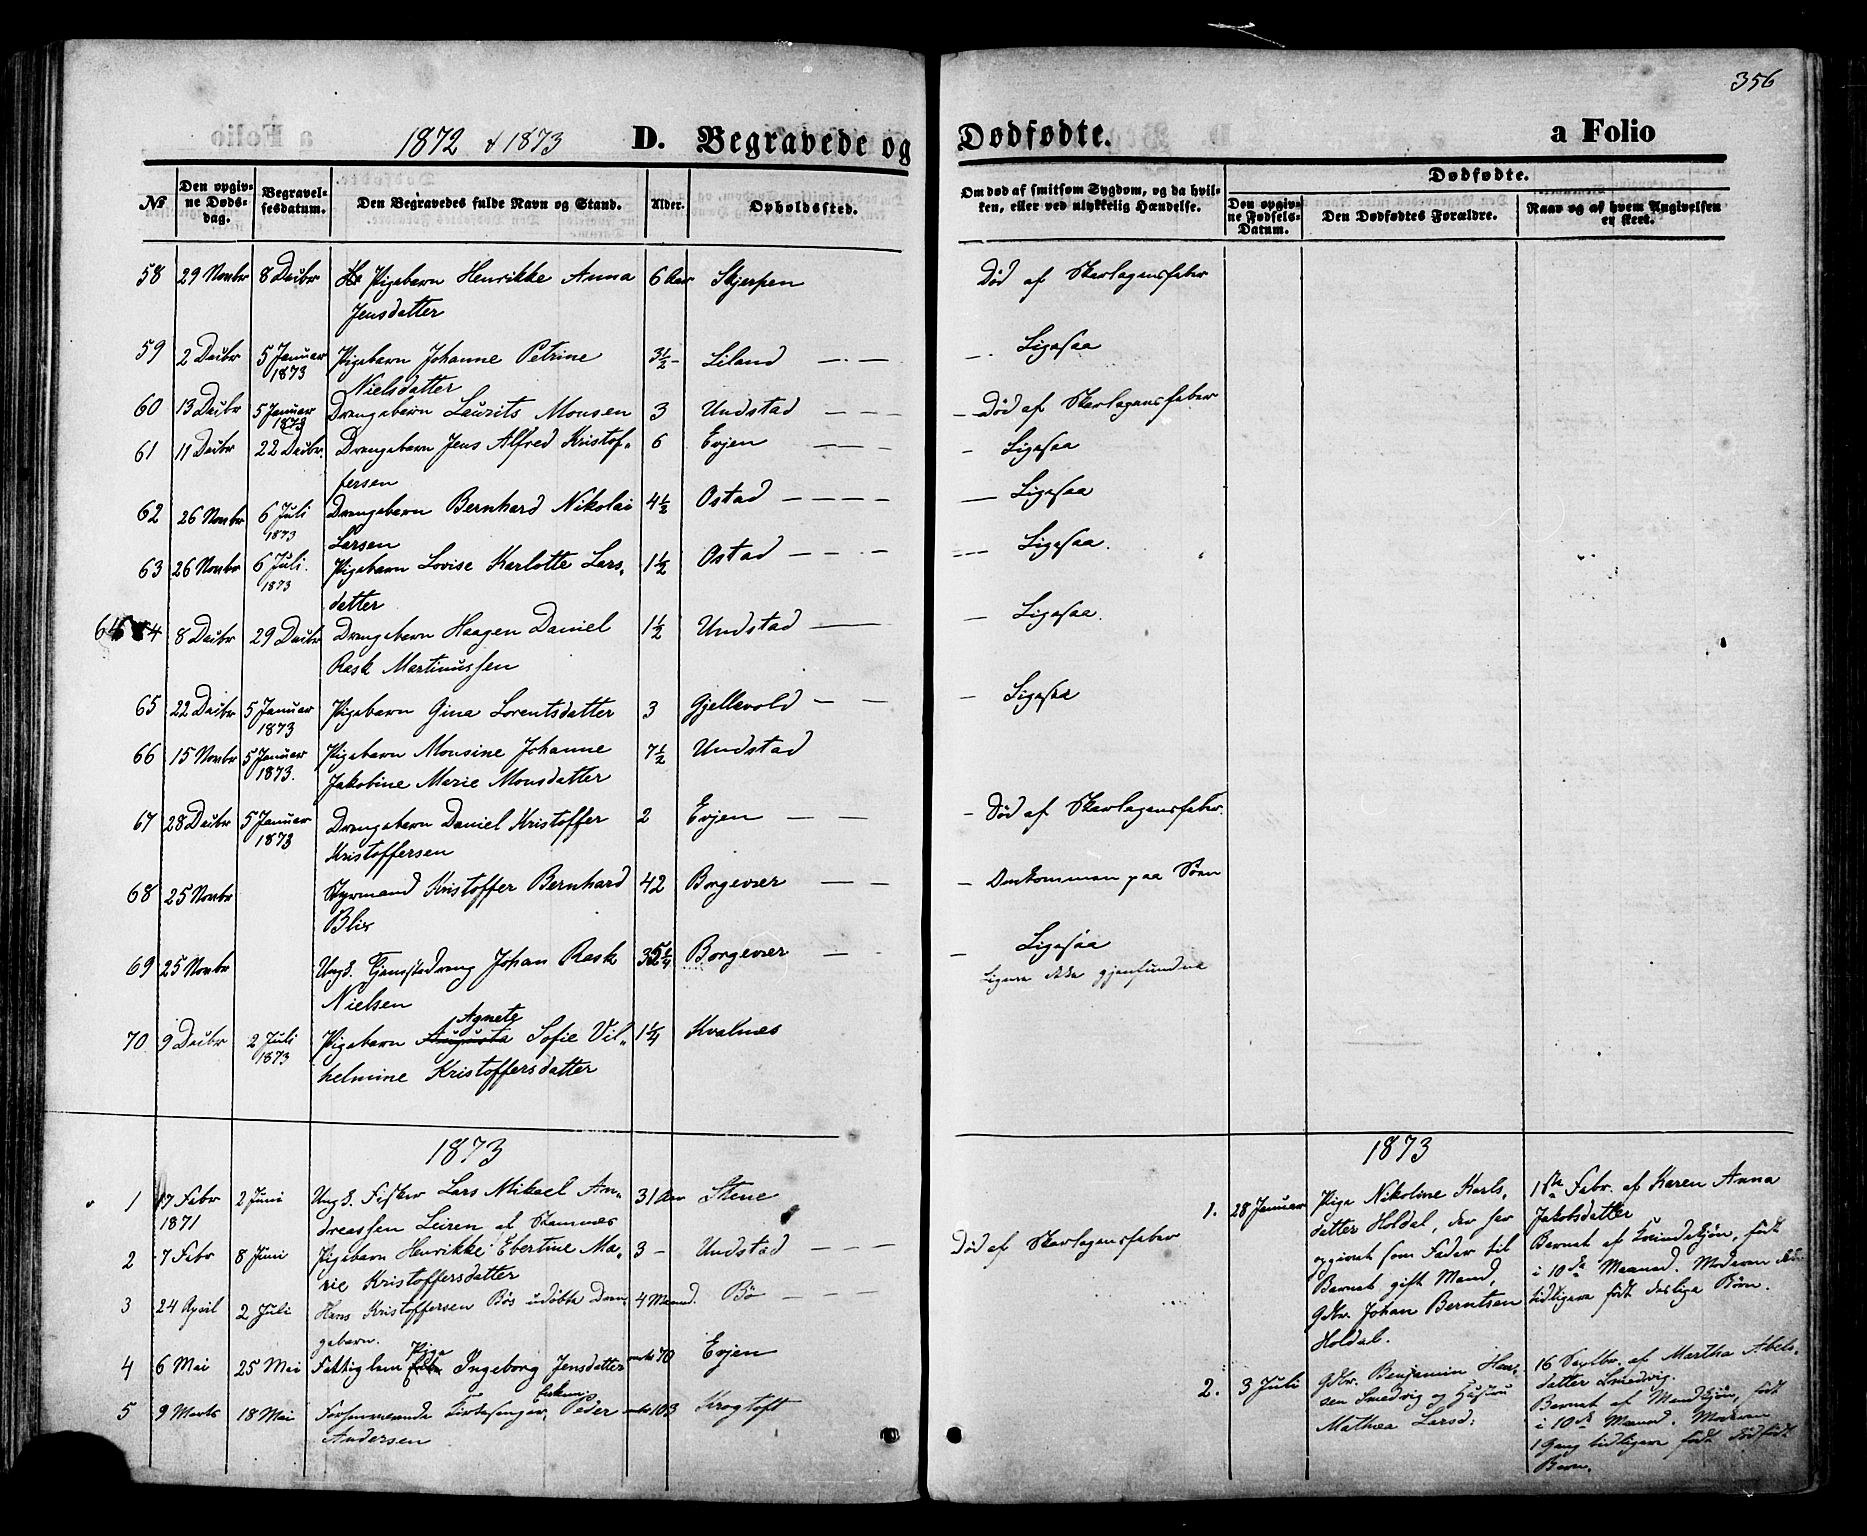 356
1872 & 1873 D. Begravede og Dødfødte. a Folio
№
Den opgivne Dødsdag.
Begravelsesdatum.
Den Begravedes fulde Navn og Stand.
Alder.
Opholdssted.
Om død af smitsom Sygdom, og da hvilken, eller ved ulykkelig Hændelse.
Dødfødte.
Den opgivne Fødsels-Datum.
Den Dødfødtes Forældre.
Naar og af hvem Angivelsen er skeet.
58 29 Novbr 8 Decbr Pigebarn Henrikke Anna 6 Aar Skjerpen Død af Skarlagensfeber
Jensdatter
59 2 Decbr 5 Januar Pigebarn Johanne Petrine 3½ - Liland — — — Ligesaa
1873 Nielsdatter
60 13 Decbr 5 Januar Drengebarn Laurits Monsen 3 Undstad — — — Død af Skarlagensfeber
1873
61 11 Decbr 22 Decbr. Drengebarn Jens Alfred Kristof- 6 Evjen — — — Ligesaa
fersen
62 26 Novbr 6 Juli Drengebarn Bernhard Nikolai 4½ Ostad — — — — Ligesaa
1873 Larsen
63 26 Novbr 6 Juli. Pigebarn Lovise Karlotte Lars- 1½ Ostad — — — Ligesaa.
1873 datter
64 8 Decbr 29 Decbr Drengebarn Haagen Daniel 1½ Undstad — — Ligesaa.
Rask Martinussen
65 22 Decbr 5 Januar Pigebarn Gina Lorentsdatter 3 Gjellevold — — — Ligesaa
1873
66 15 Novbr 5 Januar Pigebarn Monsine Johanne 7½ Undstad
1873. Jakobine Marie Monsdatter
67 28 Decbr 5 Januar Drengebarn Daniel Kristoffer 2 Evjen — — — Død af Skarlagensfeber.
1873 Kristoffersen
68 25 Novbr Styrmand Kristoffer Bernhard 42 Borgevær — — — Omkommen paa Søen
Blix
69 25 Novbr Ungk. Tjenestedreng Johan Rask Borgevær — — — Ligesaa
Nielsen Ligene ikke gjenfundne
Agnete
70 9 Decbr 2 Juli Pigebarn Augusta Sofie Vil- 1¼ Kvalnes
1873 helmine Kristoffersdatter
1873
1 17 Febr 2 Juni Ungk. Fisker Lars Mikael An- 31 Aar Stene
1871 dreassen Leiren af Stamnes
2 7 Febr 8 Juni Pigebarn Henrikke Ebertine Ma- 3 — Undstad — — — Død af Skarlagensfeber
rie Kristoffersdatter
3 24 April 2 Juli Hans Kristoffersen Bøs udøbte Dren- 4 Maaned. Bø — — —
gebarn.
Pige
4 6 Mai 25 Mai Fattiglem Ingeborg Jensdatter 70 Evjen
5 9 Marts 18 Mai Forhenværende Kirkesanger, Enkem. Peder 103 Krogtoft
Andersen
1873
1. 28 Januar Pige Nikoline Karls-
datter Holdal, der har
opgivet som Fader til
Barnet gift Mand,
Gdbr. Johan Berntsen
Holdal.
1ste Febr. af Karen Anna
Jakobsdatter
Barnet af Kvindekjøn, født
i 10de Maaned. Moderen
tidligere født deslige Børn.
2. 3 Juli Gdbr. Benjamin Han-
sen Smedvig og Hustru
Mathea Larsd:
16 Septbr. af Martha Abels-
datter Smedvig.
Barnet af Mandkjøn, født
i 10de Maaned. Moderen
1 Gang tidligere født dødfødt
Barn.